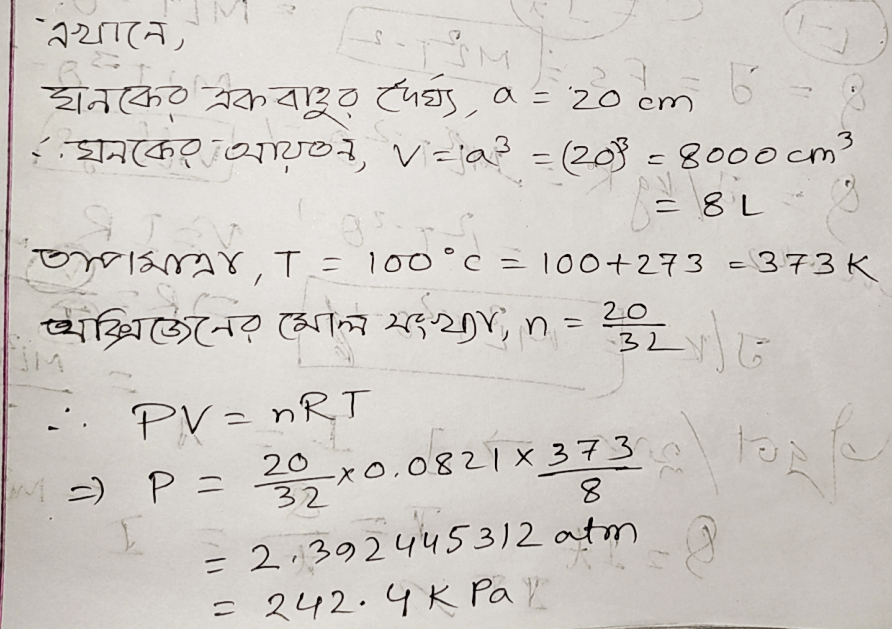 এখানে,
ঘনকের একবাহুর দৈর্ঘ্য, a = 20 cm
∴ ঘনকের আয়তন, V = a³ = (20)³ = 8000 cm³
= 8 L
তাপমাত্রা, T = 100°c = 100+273 = 373 K
অক্সিজেনের মোল সংখ্যা, n = 20/32
∴ PV = nRT
⇒ P = 20/32 × 0.0821 × 373/8
= 2.392445312 atm
= 242.4 K Pa